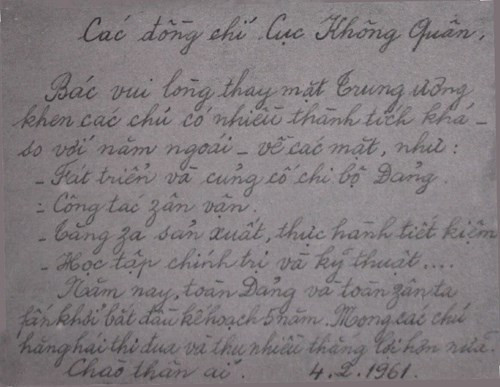 Các đồng chí Cục Không Quân,
Bác vui lòng thay mặt Trung ương
khen các chú có nhiều thành tích khá -
so với năm ngoái - về các mặt, như:
- Fát triển và củng cố chi bộ Đảng.
- Công tác zân vận.
- Tăng za sản xuất, thực hành tiết kiệm
- Học tập chính trị và kỹ thuật....
Năm nay, toàn Đảng và toàn zân ta
fấn khởi bắt đầu kế hoạch 5 năm. Mong các chú
hăng hái thi đua và thu nhiều thắng lợi hơn nữa.
Chào thân ái. 4.2.1961.